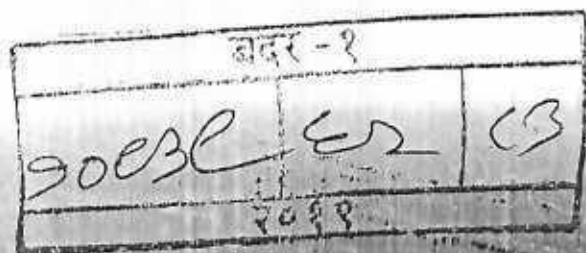 बदर -१
१०८३८ ६२ ८३
२०११